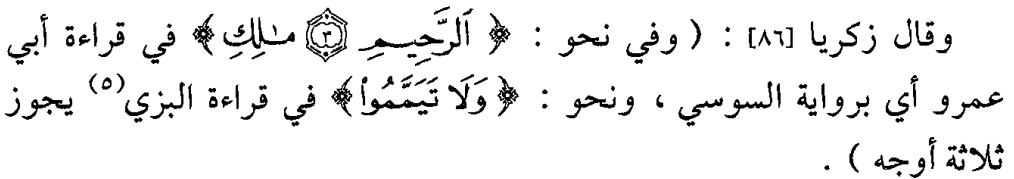 وقال زكريا [٨٦] : ( وفي نحو : ﴿ ٱلرَّحِيمِ ۝٣ مَٰلِكِ ﴾ في قراءة أبي
عمرو أي برواية السوسي ، ونحو : ﴿ وَلَا تَيَمَّمُواْ ﴾ في قراءة البزي(٥) يجوز
ثلاثة أوجه ) .